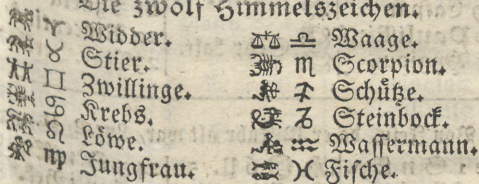 Die zwölf Himmelszeichen.
♈ Widder.
♉ Stier.
♊ Zwillinge.
♋ Krebs.
♌ Löwe.
♍ Jungfrau.
♎ Waage.
♏ Scorpion.
♐ Schütze.
♑ Steinbock.
♒ Wassermann.
♓ Fische.